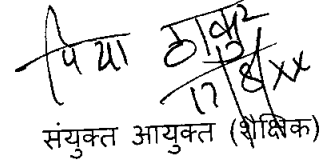 पिया ठाकुर
17/8/xx
संयुक्त आयुक्त (शैक्षिक)